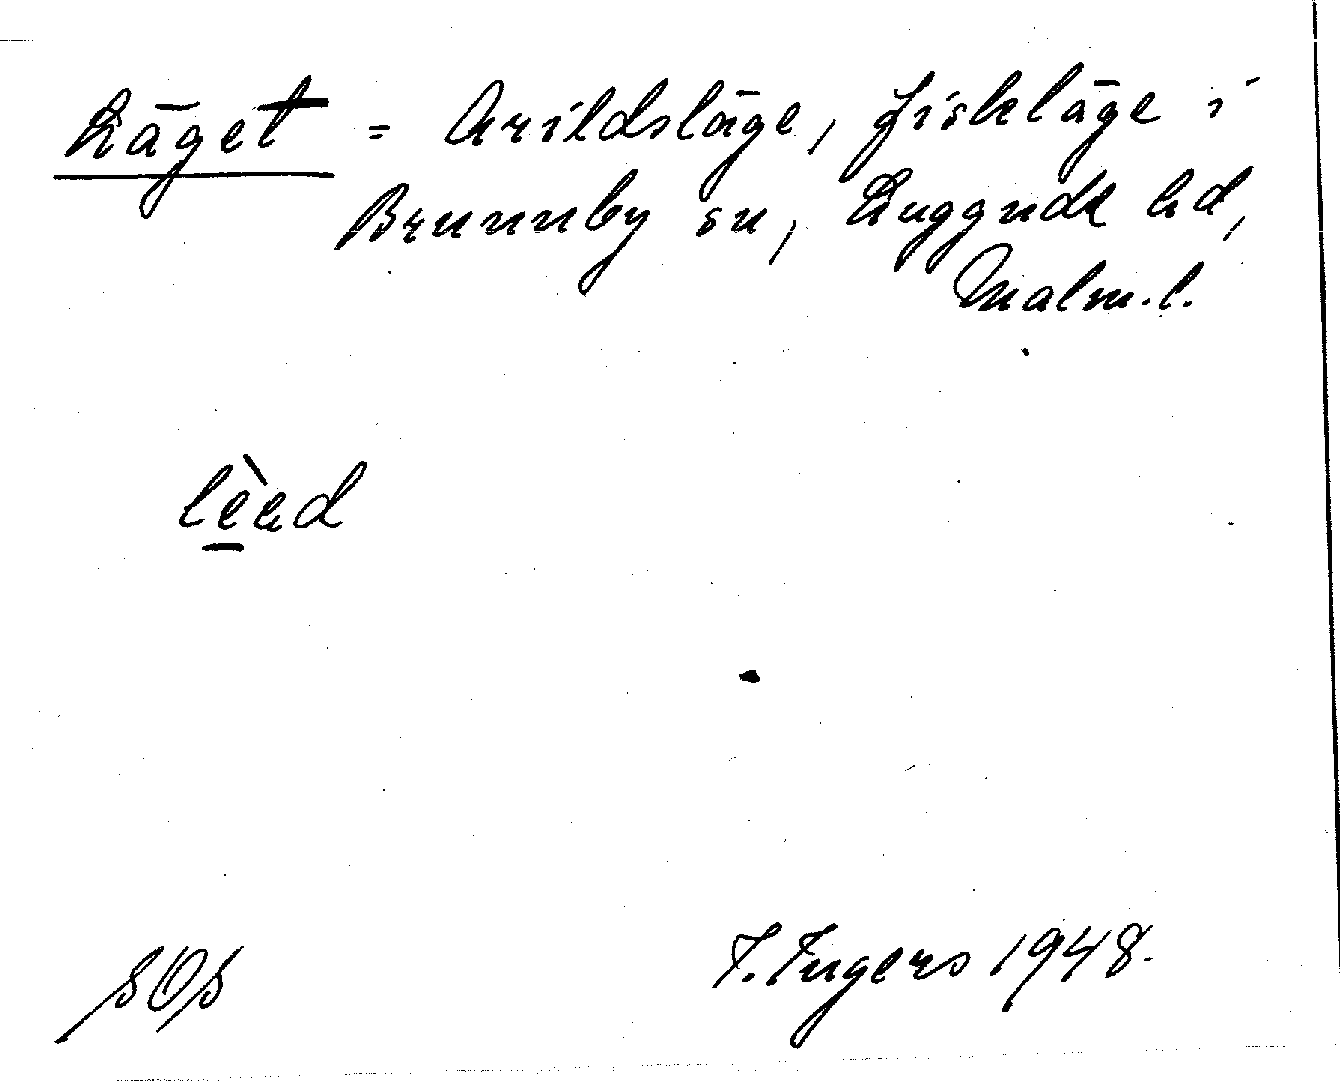 Läget = Arildsläge, fiskläge i
Brunnby sn, Luggude hd,
Malm.l.
lèəd
SOS
I. Ingers 1948.